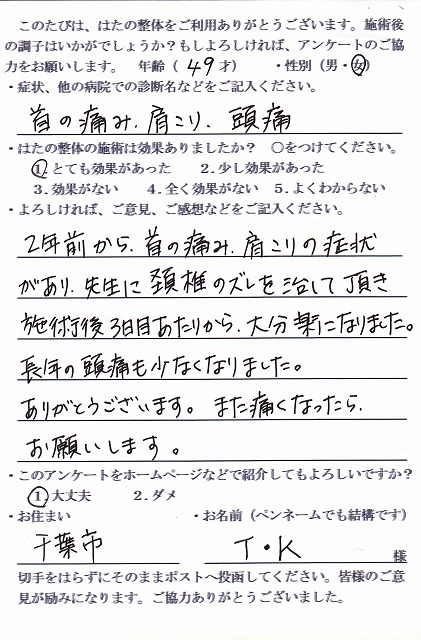 このたびは、はたの整体をご利用ありがとうございます。施術後
の調子はいかがでしょうか？もしよろしければ、アンケートのご協
力をお願いします。　年齢（ 49 才）　・性別（男・女）
・症状、他の病院での診断名などをご記入ください。
首の痛み、肩こり、頭痛
・はたの整体の施術は効果ありましたか？　○をつけてください。
1.とても効果があった　　2.少し効果があった
3.効果がない　　4.全く効果がない　5.よくわからない
・よろしければ、ご意見、ご感想などをご記入ください。
2年前から、首の痛み、肩こりの症状
があり、先生に頚椎のズレを治して頂き
施術後3日目あたりから、大分楽になりました。
長年の頭痛も少なくなりました。
ありがとうございます。また痛くなったら、
お願いします。
・このアンケートをホームページなどで紹介してもよろしいですか？
1.大丈夫　　2.ダメ
・お住まい　　・お名前（ペンネームでも結構です）
千葉市　　T・K　様
切手をはらずにそのままポストへ投函してください。皆様のご意
見が励みになります。ご協力ありがとうございました。